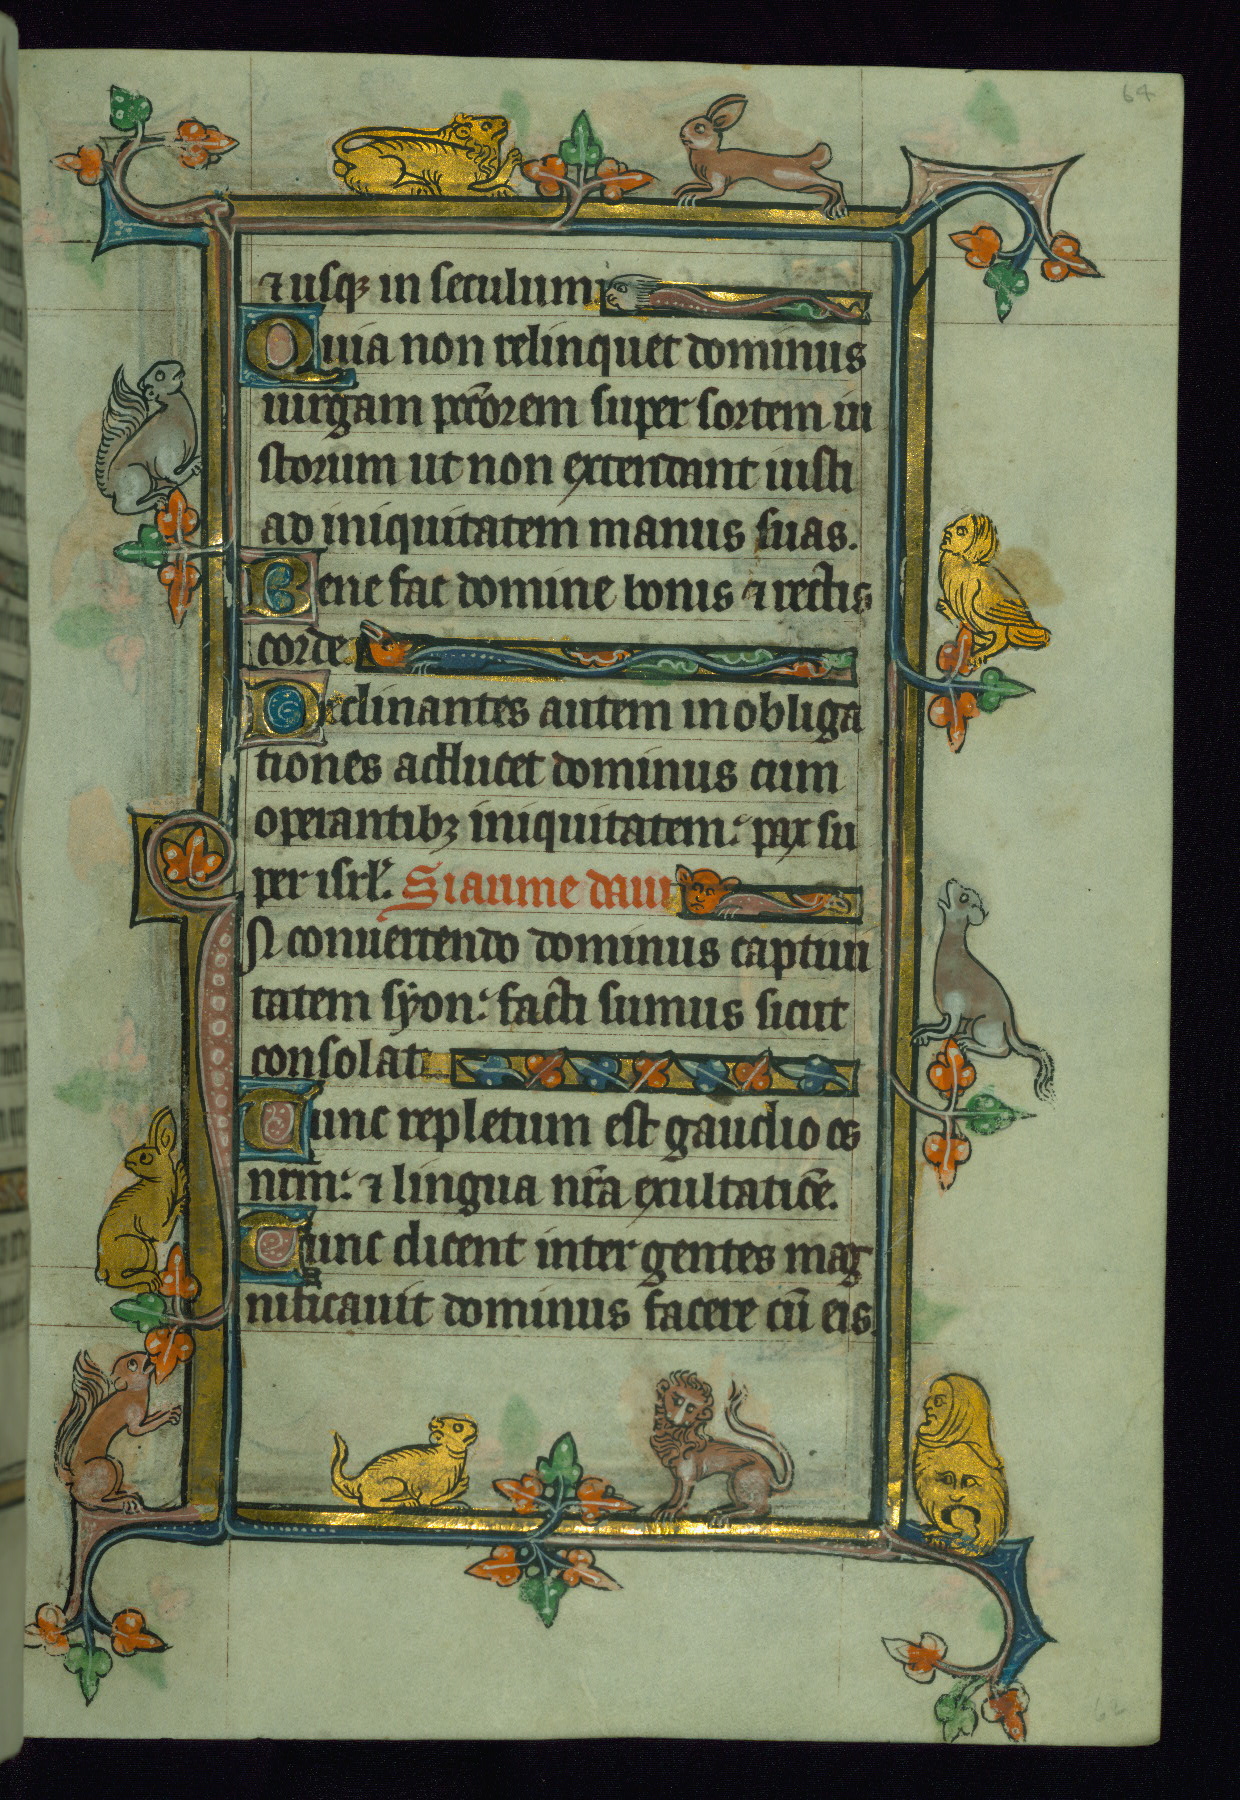 64
⁊ usqꝫ in seculum
Quia non relinquet dominus
uirgam peccorem super sortem iu
storum ut non extendant iusti
ad iniquitatem manus suas.
Bene fac domine bonis ⁊ rectis
corde
Declinantes autem in obliga
tiones adducet dominus cum
operantibꝫ iniquitatem: pax su
per isrl̾. Siaume daui
IN conuertendo dominus captiui
tatem syon: facti sumus sicut
consolat
Tunc repletum est gaudio os
nrm̄: ⁊ lingua nr̄a exultatiōe.
Tunc dicent inter gentes mag
nificauit dominus facere cū eis.